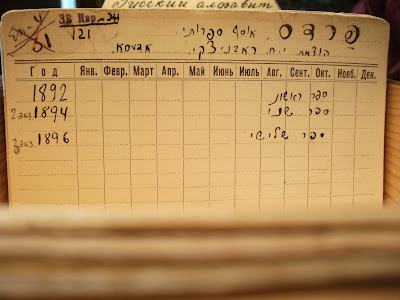 Русский алфавит
ЗВ Ивр-
51 121 פרדס. אוסף ספרותי.
הוצאת י.ח. ראבניצקי. אדעסא.
Год Янв. Февр. Март Апр. Май Июнь Июль Авг. Сент. Окт. Нояб. Дек.
1892 ספר ראשון
2 экз. 1894 ספר שני
2 экз. 1896 ספר שלישי